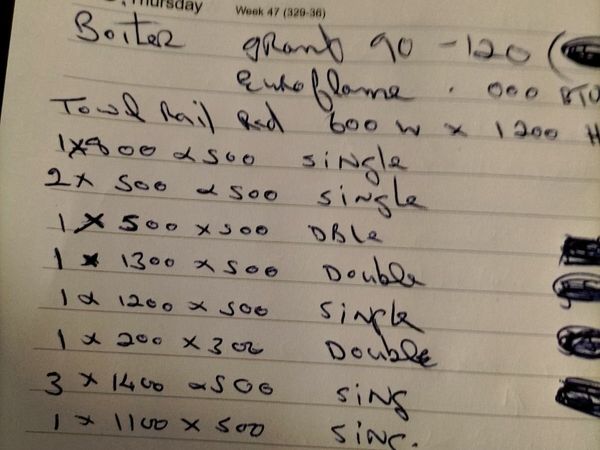 Thursday Week 47 (329-36)
Boiler grant 90 - 120 (
Euroflame . 000 BTU
Towel Rail Rad 600 W x 1200 H
1 x 800 x 500 Single
2 x 500 x 500 Single
1 x 500 x 500 DBLe
1 x 1300 x 500 Double
1 x 1200 x 500 Single
1 x 200 x 300 Double
3 x 1400 x 500 SiNg
1 x 1100 x 500 SiNG.